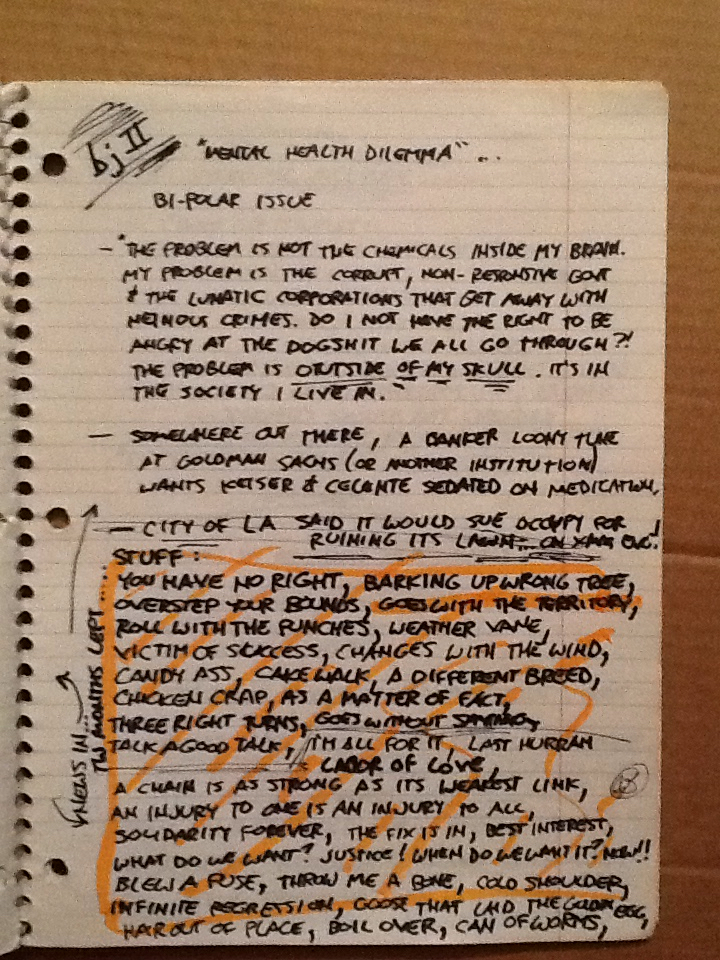 bj II
"MENTAL HEALTH DILEMMA"...
BI-POLAR ISSUE
- "THE PROBLEM IS NOT THE CHEMICALS INSIDE MY BRAIN.
MY PROBLEM IS THE CORRUPT, NON-RESPONSIVE GOVT
& THE LUNATIC CORPORATIONS THAT GET AWAY WITH
HEINOUS CRIMES. DO I NOT HAVE THE RIGHT TO BE
ANGRY AT THE DOGSHIT WE ALL GO THROUGH?!
THE PROBLEM IS OUTSIDE OF MY SKULL. IT'S IN
THE SOCIETY I LIVE IN."
- SOMEWHERE OUT THERE, A BANKER LOONY TUNE
AT GOLDMAN SACHS (OR ANOTHER INSTITUTION)
WANTS KEISER & CELENTE SEDATED ON MEDICATION.
- CITY OF LA SAID IT WOULD SUE OCCUPY FOR
RUINING ITS LAWN... ON XMAS EVE!
STUFF:
YOU HAVE NO RIGHT, BARKING UP WRONG TREE,
OVERSTEP YOUR BOUNDS, GOES WITH THE TERRITORY,
ROLL WITH THE PUNCHES, WEATHER VANE,
VICTIM OF SUCCESS, CHANGES WITH THE WIND,
CANDY ASS, CAKEWALK, A DIFFERENT BREED,
CHICKEN CRAP, AS A MATTER OF FACT,
THREE RIGHT TURNS, GOES WITHOUT SAYING,
TALK A GOOD TALK, I'M ALL FOR IT, LAST HURRAH
LABOR OF LOVE,
A CHAIN IS AS STRONG AS ITS WEAKEST LINK,
AN INJURY TO ONE IS AN INJURY TO ALL,
SOLIDARITY FOREVER, THE FIX IS IN, BEST INTEREST,
WHAT DO WE WANT? JUSTICE! WHEN DO WE WANT IT? NOW!!
BLEW A FUSE, THROW ME A BONE, COLD SHOULDER,
INFINITE REGRESSION, GOOSE THAT LAID THE GOLDEN EGG,
HAIR OUT OF PLACE, BOIL OVER, CAN OF WORMS,
NEWS IN...
MONTHS LEFT...